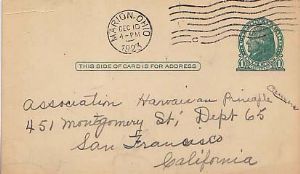 MARION, OHIO
DEC 10
4-PM
1923
THIS SIDE OF CARD IS FOR ADDRESS
Association Hawaiian Pineapple
451 Montgomery St, Dept 65
San Francisco
California